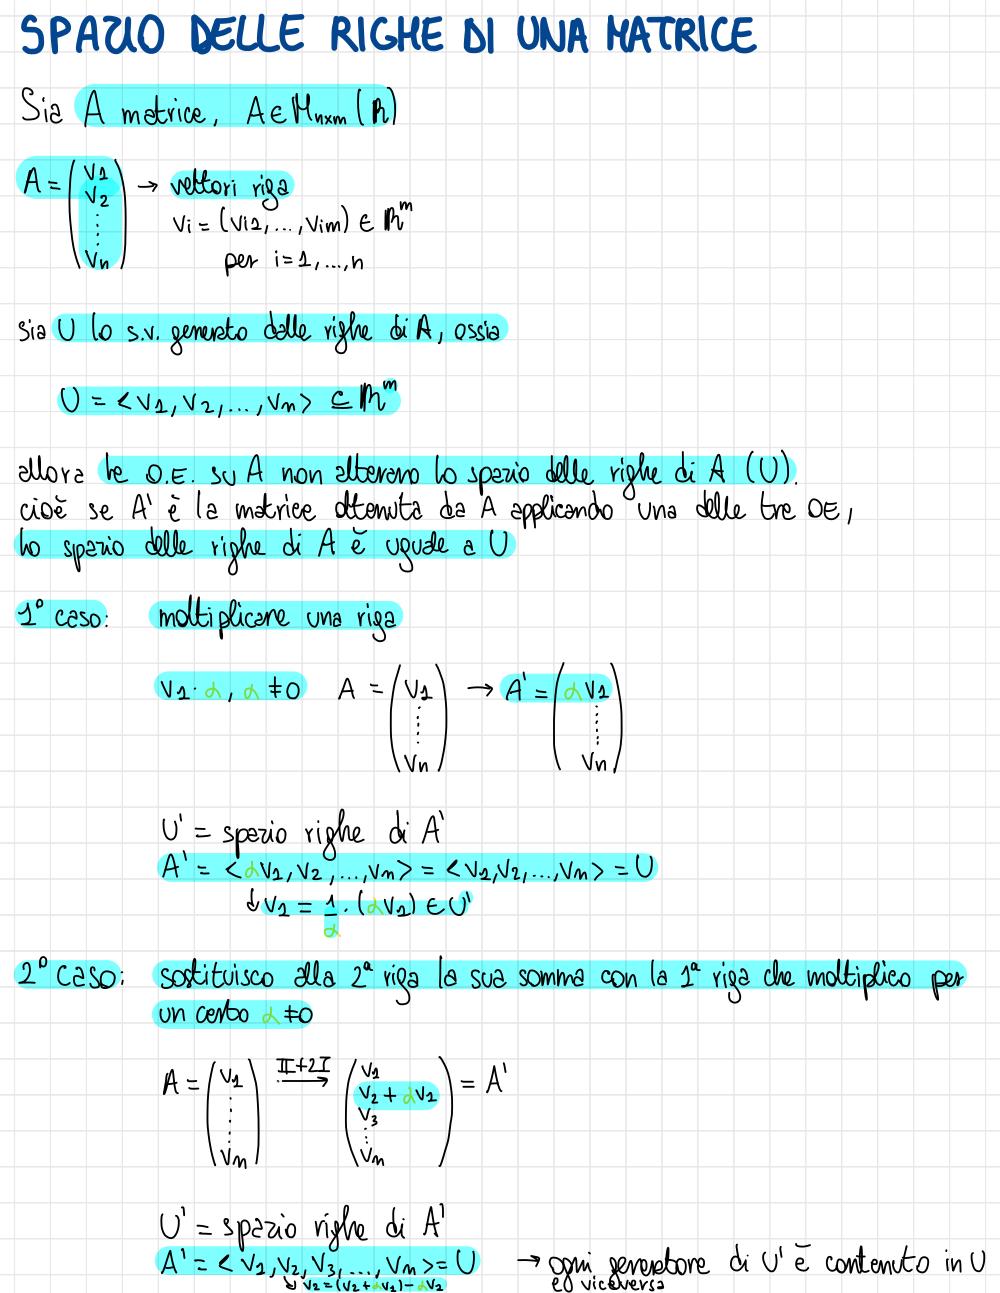 SPAZIO DELLE RIGHE DI UNA MATRICE
Sia A matrice, A ∈ Mnxm (R)
A = (v1 v2 ⋮ vn) → vettori riga
vi = (vi1, ..., vim) ∈ R^m
per i = 1, ..., n
sia U lo s.v. generato dalle righe di A, ossia
U = <v1, v2, ..., vn> ⊆ R^m
allora le O.E. su A non alterano lo spazio delle righe di A (U).
cioè se A' è la matrice ottenuta da A applicando una delle tre OE,
lo spazio delle righe di A è uguale a U
1° caso: moltiplicare una riga
v1 · α, α ≠ 0 A = (v1 ⋮ vn) → A' = (αv1 ⋮ vn)
U' = spazio righe di A'
A' = <αv1, v2, ..., vn> = <v1, v2, ..., vn> = U
↳ v1 = 1/α · (αv1) ∈ U'
2° caso: sostituisco alla 2ª riga la sua somma con la 1ª riga che moltiplico per
un certo α ≠ 0
A = (v1 ⋮ vn) II+2I → (v1 v2 + αv1 v3 ⋮ vn) = A'
U' = spazio righe di A'
A' = <v1, v2, v3, ..., vn> = U → ogni generatore di U' è contenuto in U
↳ v2 = (v2 + αv1) - αv1 ed viceversa